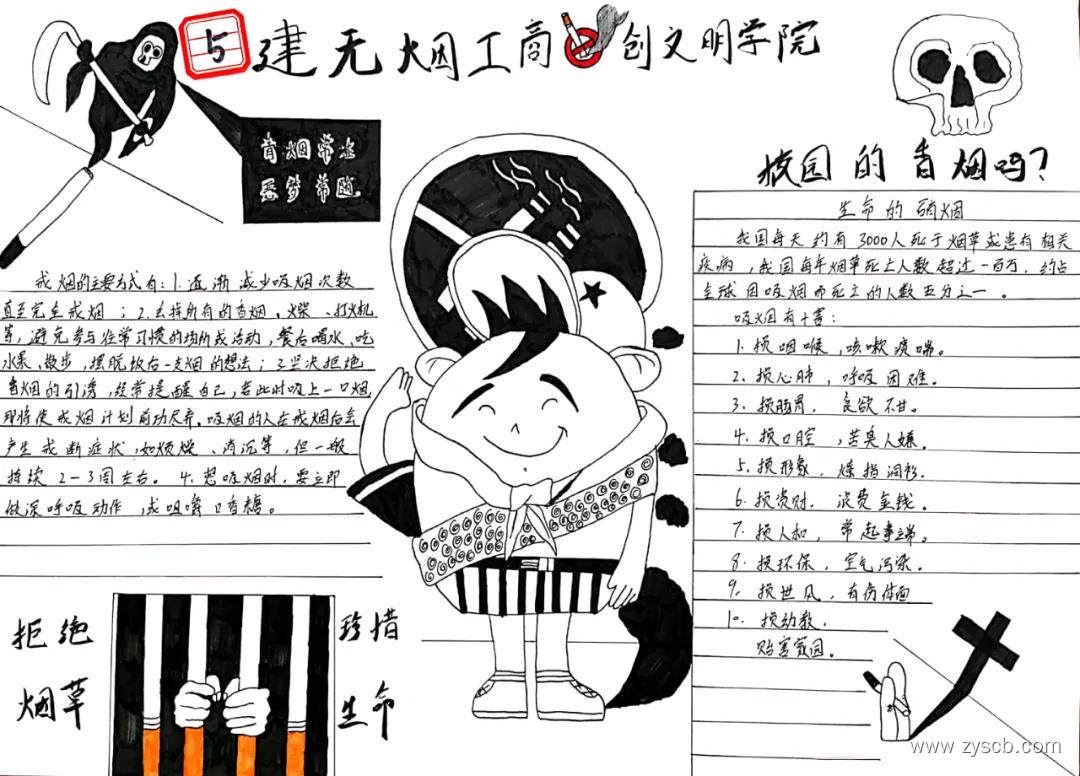 5 建无烟工商 创文明学院
烟常
恶梦常随
戒烟的主要方式有：1.逐渐减少吸烟次数
直至完全戒烟；2.去掉所有的香烟、打火机
等，避免参与往常习惯的场所或活动，餐后喝水、吃
水果、散步，摆脱饭后一支烟的想法；3.坚决拒绝
香烟的引诱，经常提醒自己，若此时吸上一口烟
即将使戒烟计划前功尽弃。吸烟的人在戒烟后会
产生戒断症状，如烦燥、消沉等，但一般
持续2-3周左右。4.想吸烟时，要立即
做深呼吸动作，或咀嚼口香糖。
拒绝
烟草
珍惜
生命
校园的香烟吗？
生命的硝烟
我国每天约有3000人死于烟草或患有相关
疾病，我国每年烟草死亡人数超过一百万，约占
全球因吸烟而死亡的人数五分之一。
吸烟有十害：
1.损咽喉，咳嗽痰喘。
2.损心肺，呼吸困难。
3.损肠胃，食欲不甘。
4.损口腔，苦臭人嫌。
5.损形象，
6.损资财，浪费金钱。
7.损人和，常起事端。
8.损环保，空气污染。
9.损世风，有伤体面
10.损幼教，
贻害家园。
www.zyscb.com